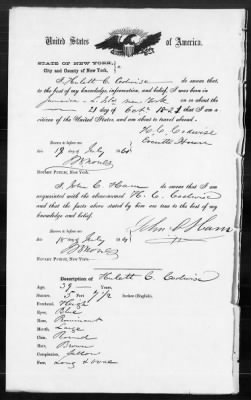 United States of America.
STATE OF NEW YORK,
City and County of New York, } s.
I, Hulett C. Codwise do swear that,
to the best of my knowledge, information, and belief, I was born in
Jamaica L. I. New York on or about the
21 day of 18 that I am a
citizen of the United States, and am about to travel abroad.
H. C. Codwise
Everetts House
Sworn to before me
18 of July
NOTARY PUBLIC, New-York.
I, John C Ham do swear that I am
acquainted with the above-named H. C. Codwise
and that the facts above stated by him are true to the best of my
knowledge and belief.
John C Ham
Sworn to before me
18 of July
NOTARY PUBLIC, New-York.
Description of Hulett C. Codwise
Age, 39 Years.
Stature, 5 Feet 7 1/2 Inches (English).
Forehead, High
Eyes, Blue
Nose, Prominent
Mouth, Large
Chin, Round
Hair, Brown
Complexion, Sallow
Face, Long & oval